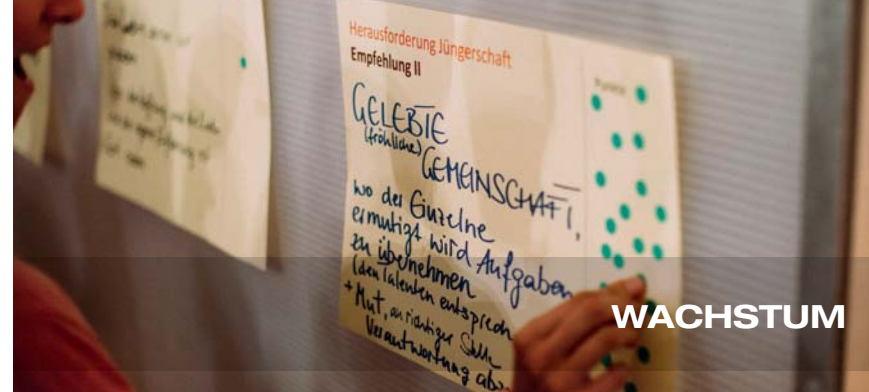 Herausforderung Jüngerschaft
Empfehlung II
Punkte
GELEBTE
(fröhliche)
GEMEINSCHAFT,
wo der Einzelne
ermutigt wird Aufgaben
zu übernehmen
(den Talenten entsprech
+ Mut, an richtiger Stelle
Verantwortung abz
WACHSTUM